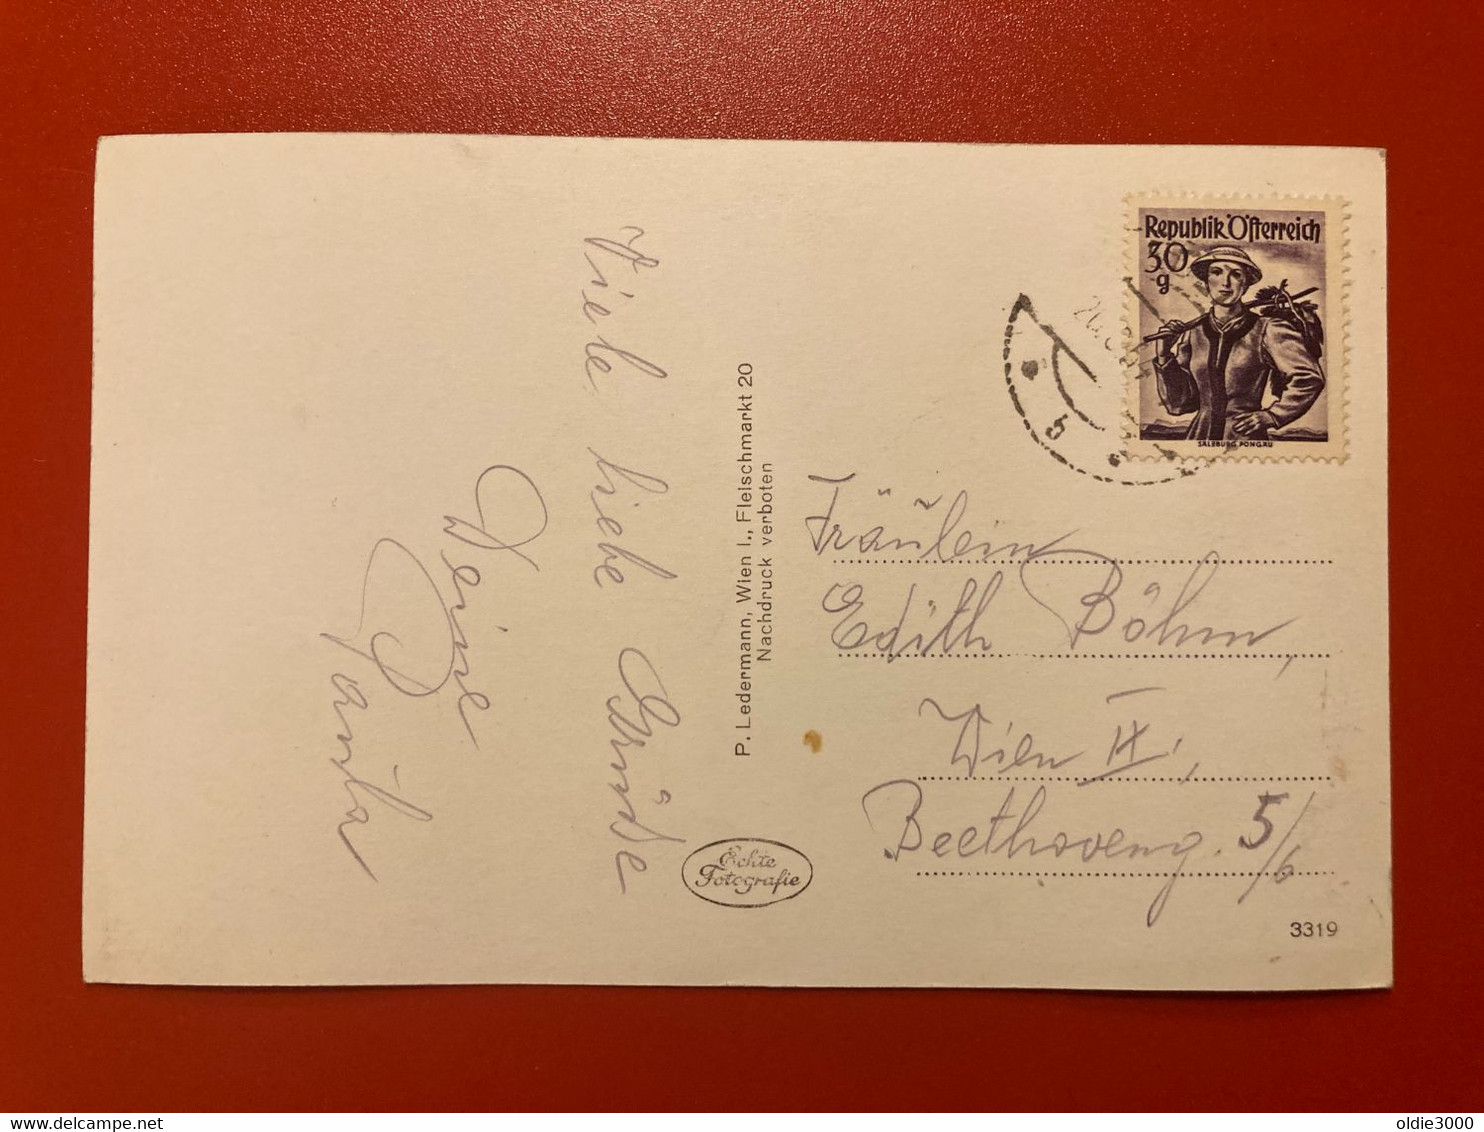 Viele liebe Grüße
Deine
P. Ledermann, Wien I., Fleischmarkt 20
Nachdruck verboten
Echte
Fotografie
Republik Österreich
30
g
SALZBURG PONGAU
b
Fräulein
Edith Böhm,
Wien IX,
Beethoveng. 5/6
3319
oldie3000